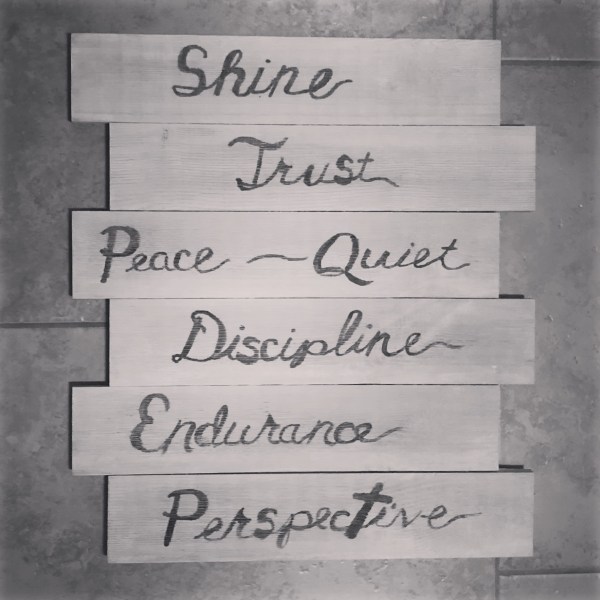 Shine
Trust
Peace ~ Quiet
Discipline
Endurance
Perspective